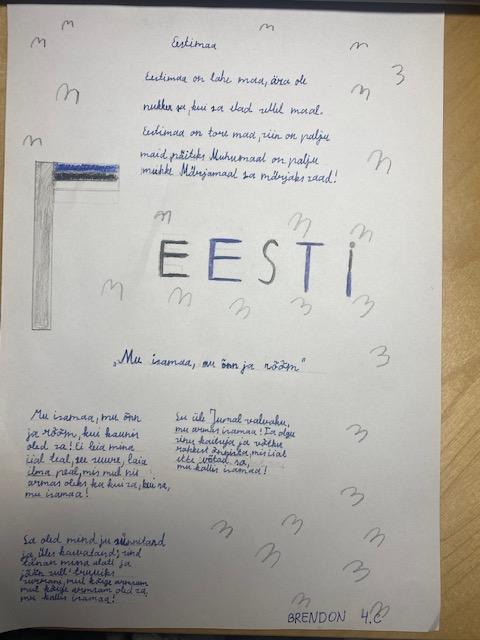 Eestimaa
Eestimaa on lahe maa, ära ole
nukker sa, kui sa elad sellel maal.
Eestimaa on tore maa, siin on palju
maid, näiteks Muhumaal on palju
muhke Märjamaal sa märjaks saad!
EESTI
„Mu isamaa, mu õnn ja rõõm"
Mu isamaa, mu õnn
ja rõõm, kui kaunis
oled sa! Ei leia mina
iial teal, see suure, laia
ilma peal, mis mul nii
armas oleks ka kui sa, kui sa,
mu isamaa!
Su üle Jumal valvaku,
mu armas isamaa! Ta olgu
sinu kaitseja ja võtku
rohkest õnnista, mis iial
ette võtad sa,
mu kallis isamaa!
Sa oled mind ju sünnitand
ja üles kasvatand; sind
tänan mina alati ja
jään sull' truuiks
surmani, mul kõige armsam
mul kõige armsam oled sa,
mu kallis isamaa!
BRENDON 4.C